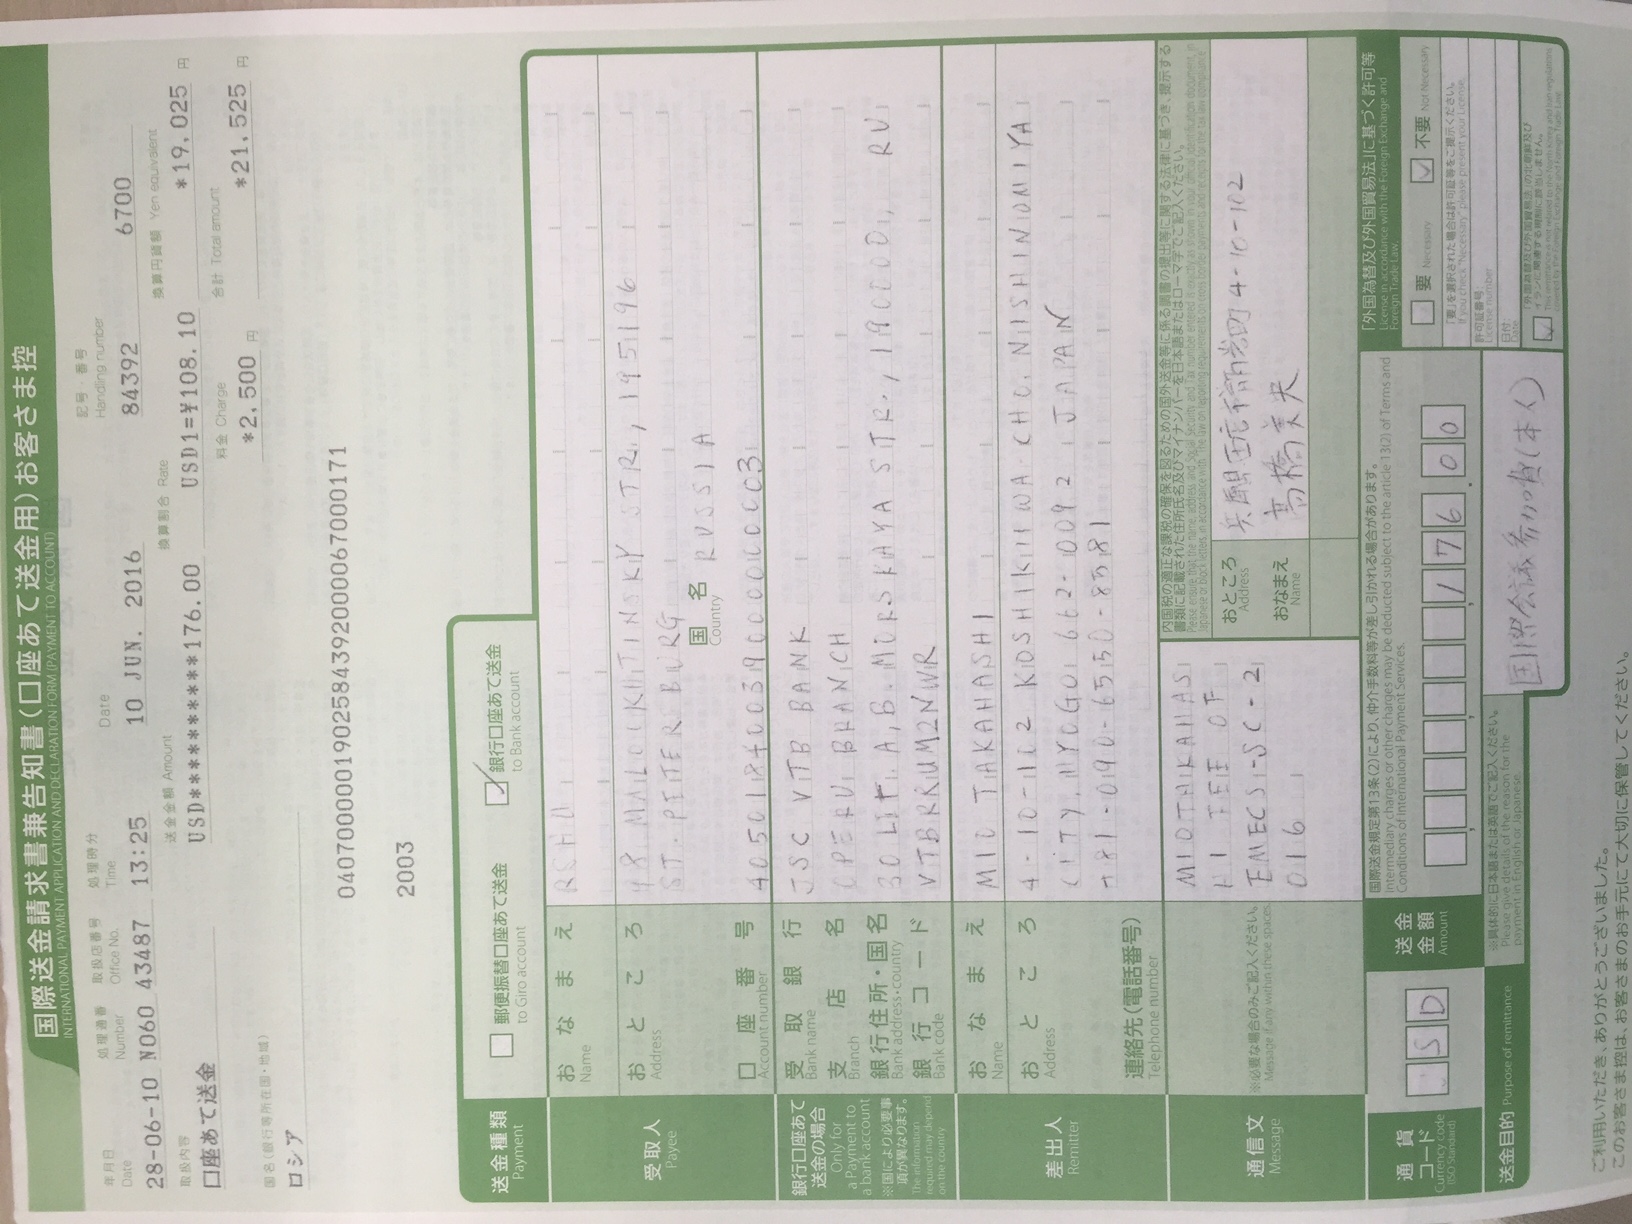 国際送金請求書兼告知書(口座あて送金用)お客さま控
INTERNATIONAL PAYMENT APPLICATION AND DECLARATION FORM (PAYMENT TO ACCOUNT)
年月日 Date 28-06-10
処理通番 Number N060
取扱店番号 Office No. 43487
処理時分 Time 13:25
Date 10 JUN. 2016
記号・番号 Handling number 84392 6700
取扱内容 口座あて送金
送金金額 Amount USD**********176.00
換算割合 Rate USD1=¥108.10
換算円貨額 Yen equivalent *19,025 円
料金 Charge *2,500 円
合計 Total amount *21,525 円
国名(銀行等所在国・地域)
ロシア
040700000190258439200006700​0171
2003
送金種類 Payment
郵便振替口座あて送金 to Giro account
銀行口座あて送金 to Bank account
受取人 Payee
おなまえ Name RSHU
おところ Address 98 MALOOKHTINSKY STR., 195196
ST. PETERSBURG
国名 Country RUSSIA
口座番号 Account number 40501840039000000003
銀行口座あて送金の場合
Only for a Payment to a bank account
※国により必要事項が異なります。
The information required may depend on the country
受取銀行 Bank name JSC VTB BANK
支店名 Branch OPERU BRANCH
銀行住所・国名 Bank address・country 30 LIT. A, B. MORSKAYA STR., 190000, RU
銀行コード Bank code VTBRRUM2NWR
差出人 Remitter
おなまえ Name MIO TAKAHASHI
おところ Address 4-10-102 KOSHIKIIWA-CHO. NISHINOMIYA
CITY. HYOGO 662-0092 JAPAN
+81-090-6550-8581
連絡先(電話番号) Telephone number
通信文 Message
※必要な場合のみご記入ください。
Message if any within these spaces.
MIOTAKAHAS
HI FEE OF
EMECS-SC-2
016
内国税の適正な課税の確保を図るための国外送金等に係る調書の提出等に関する法律に基づき、提示する
書類に記載された住所氏名及びマイナンバーを日本語またはローマ字でご記入ください。
おところ Address 4-10-102
おなまえ Name 高橋美央
通貨コード Currency code (ISO Standard) USD
送金金額 Amount 176.00
国際送金規定第13条(2)により、仲介手数料等が差し引かれる場合があります。
Intermediary charges or other charges may be deducted subject to the article 13(2) of Terms and
Conditions of International Payment Services.
「外国為替及び外国貿易法」に基づく許可等
License in accordance with the Foreign Exchange and
Foreign Trade Law.
要 Necessary 不要 Not Necessary
「要」を選択された場合は許可証等をご提示ください。
If you check "Necessary" please present your License.
許可証番号:
License number
日付:
Date
「外国為替及び外国貿易法」の北朝鮮及び
イランに関連する規制に該当しません。
This remittance is not related to the North Korea and Iran regulations
covered by the Foreign Exchange and Foreign Trade Law.
送金目的 Purpose of remittance
※具体的に日本語または英語でご記入ください。
Please give details of the reason for the
payment in English or Japanese.
国際会議参加費(本人)
ご利用いただき、ありがとうございました。
このお客さま控は、お客さまのお手元にて大切に保管してください。